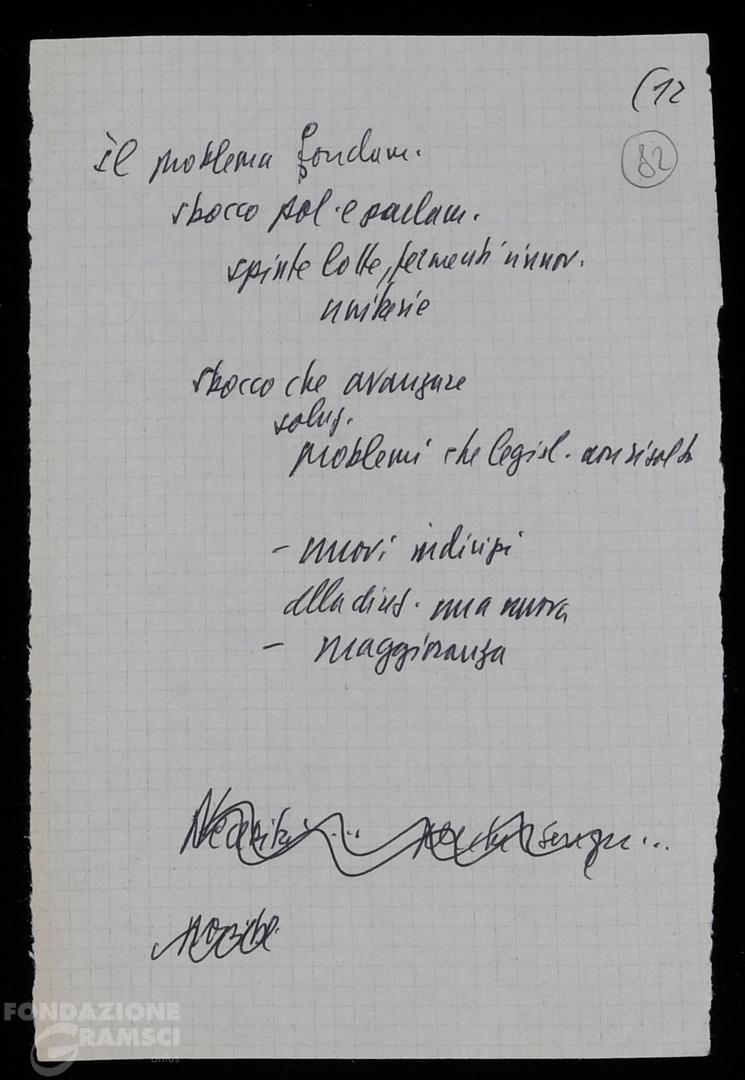 (12
82
Il problema fondam.
sbocco pol. e parlam.
spinte lotte, fermenti rinnov.
unitarie
sbocco che avanzare
soluz.
problemi che legisl. non risolto
- nuovi indirizzi
alla direz. una nuova
- maggioranza
Necessità ... senza ...
possibil.
FONDAZIONE
GRAMSCI
onlus